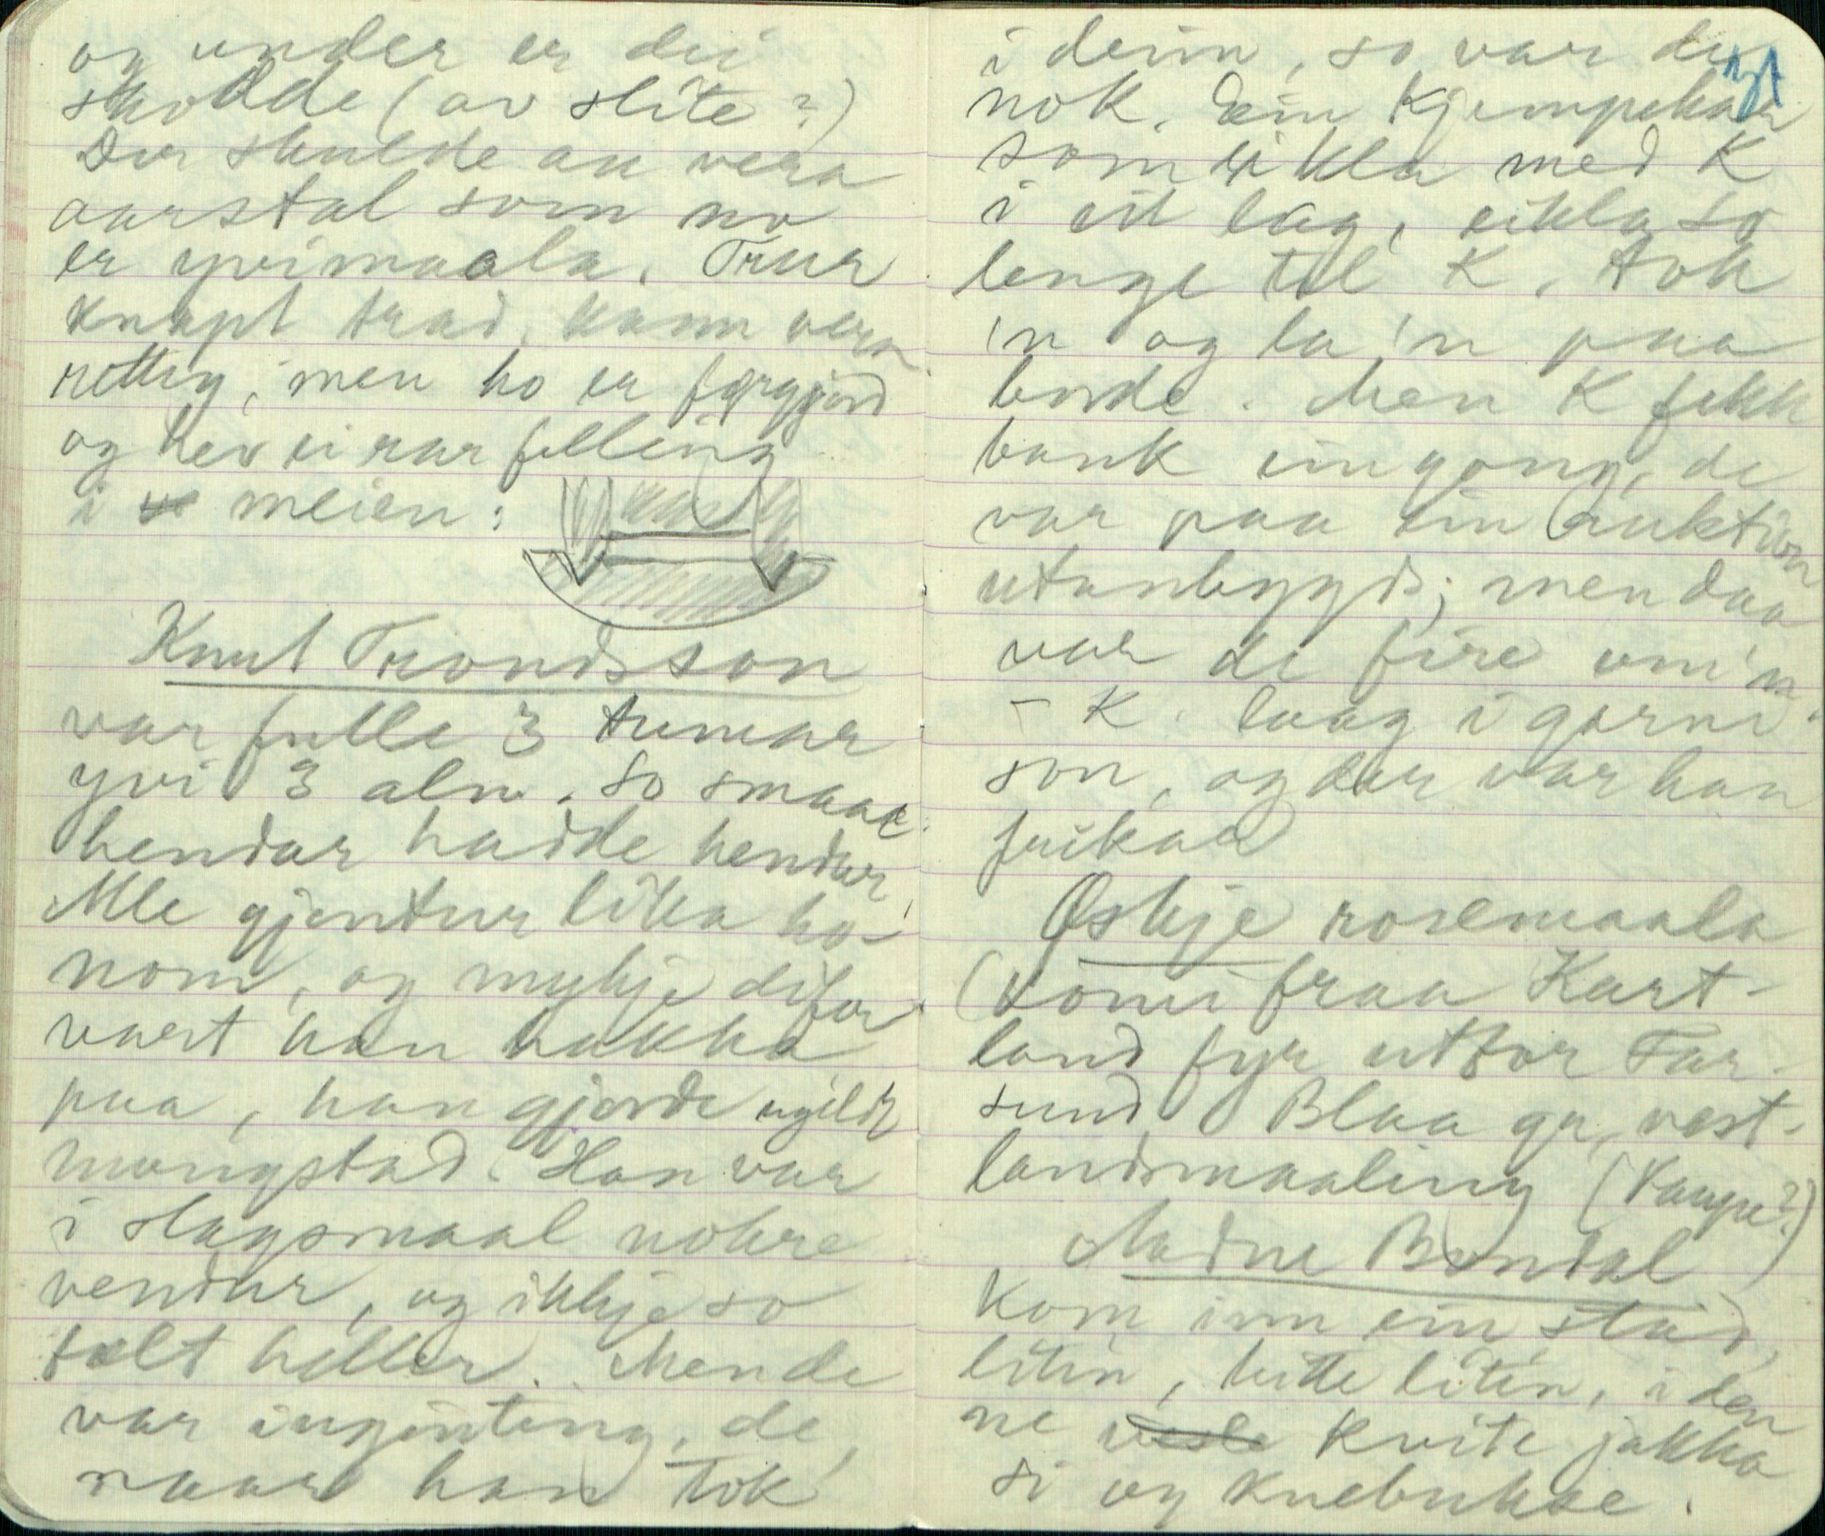 og under er dei
skodde (av slite?)
Der skulde au vera
aarstal som no
er yvimaala. Trur
knapt trad. kann vera
rettig, men ho er forgjord
og hev ei rar felling
i meien:
Knut Trondsson
var fulle 3 tumar
yvi 3 aln. So smaae
hendar hadde hendar
Alle gjentur lika ho-
nom, og mykje difor
vart han hakka
paa, han gjorde ugildt
mangstad. Han var
i slagsmaal nokre
vendur, og ikkje so
talt heller. Men de
var ingenting, de,
naar han tok
i deim, so var de
nok. Ein Kjempekar
som eikla med K
i eit lag, eikla so
lenge til K. tok
'n og la 'n paa
borde. Men K fekk
bank eingong, de
var paa ein auktion
utanbygds; men daa
var de fire um 'n
- K. laag i garni-
son, og der var han
frikar
Øskje rosemaala
(komi fraa Kart-
land fyr uttor Far-
sund Blaa gr, vest-
landsmaaling (Vangen?)
Aadne Bondal
kom inn ein stad,
liten, bitte liten, i den
ne kvite jakka
si og knebukse.